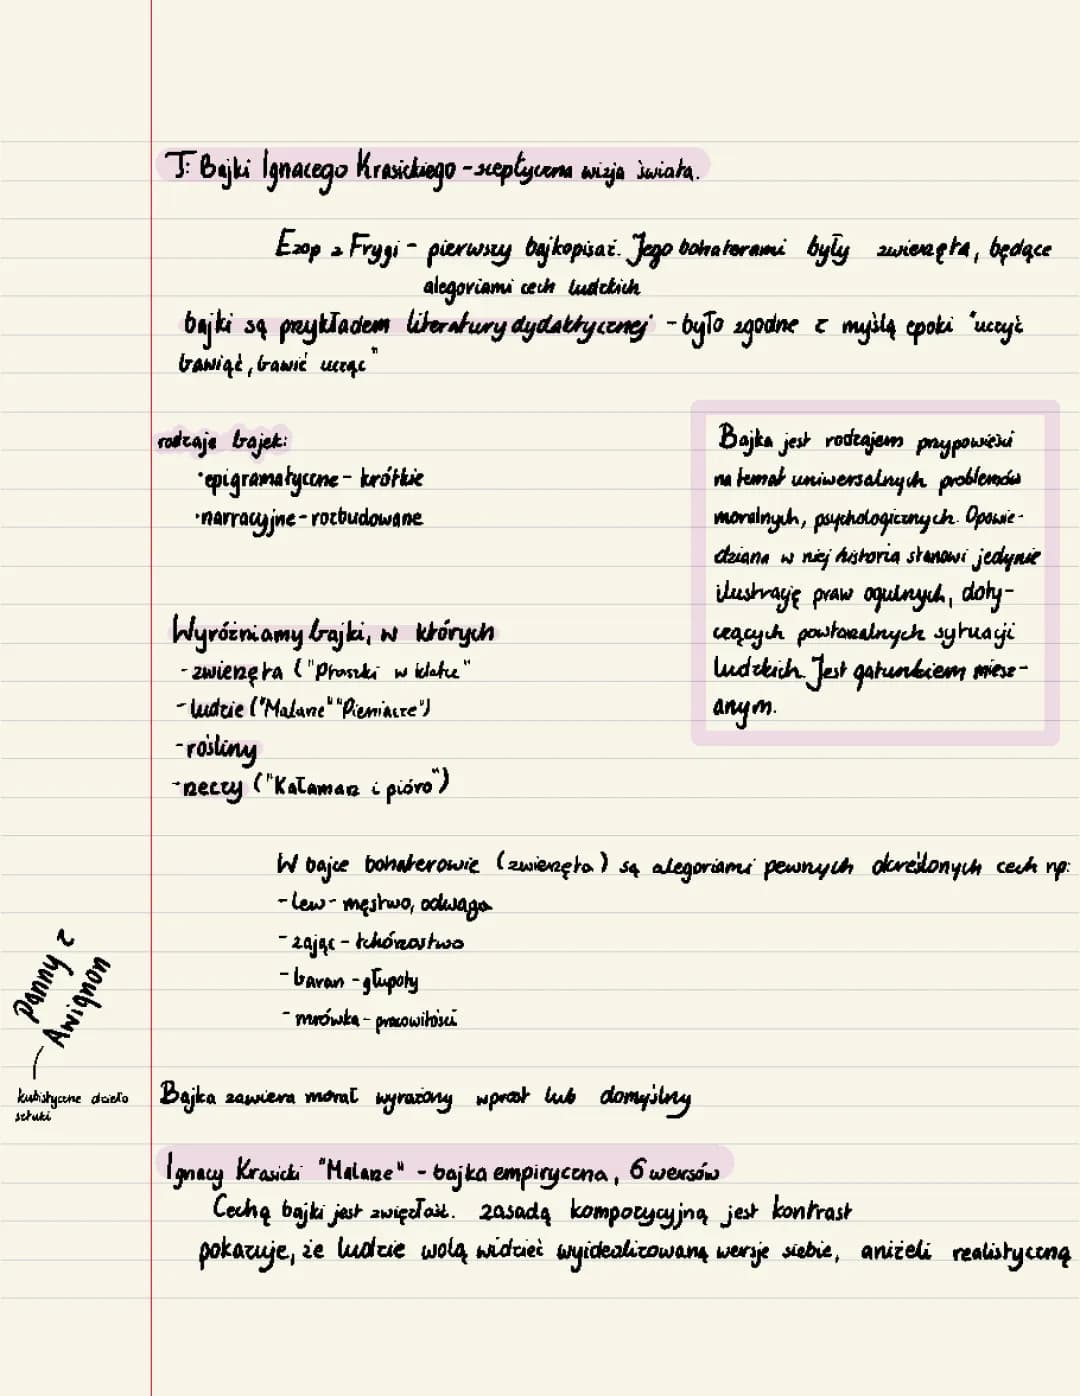 T: Bajki Ignacego Krasickiego - sceptyczna wizja świata.
Ezop z Frygi - pierwszy bajkopisaż. Jego bohaterami były zwierzęta, będące
alegoriami cech ludzkich
bajki są przykładem literatury dydaktycznej - było zgodne z myślą epoki "uczyć
bawiąc, bawić ucząc"
rodzaje bajek:
·epigramatyczne - krótkie
·narracyjne - rozbudowane
Bajka jest rodzajem przypowieści
na temat uniwersalnych problemów
moralnych, psychologicznych. Opowie-
dziana w niej historia stanowi jedynie
ilustrację praw ogulnych, doty-
czących powtarzalnych sytuacji
ludzkich. Jest gatunkiem miesz-
anym.
Wyróżniamy bajki, w których
- zwierzęta ("Ptaszki w klatce"
- ludzie ("Malarze" "Pieniacze")
- rośliny
- rzeczy ("Kałamarz i pióro")
W bajce bohaterowie (zwierzęta) są alegoriami pewnych określonych cech np:
- lew - męstwo, odwaga
- zając - tchórzostwo
- baran - głupoty
- mrówka - pracowitości
Panny z
Awignon
kubistyczne dzieło
sztuki
Bajka zawiera morał wyrażony wprost lub domyślny
Ignacy Krasicki "Malarze" - bajka empiryczna, 6 wersów
Cechą bajki jest zwięzłość. zasadą kompozycyjną jest kontrast
pokazuje, że ludzie wolą widzieć wyidealizowaną wersje siebie, aniżeli realistyczną